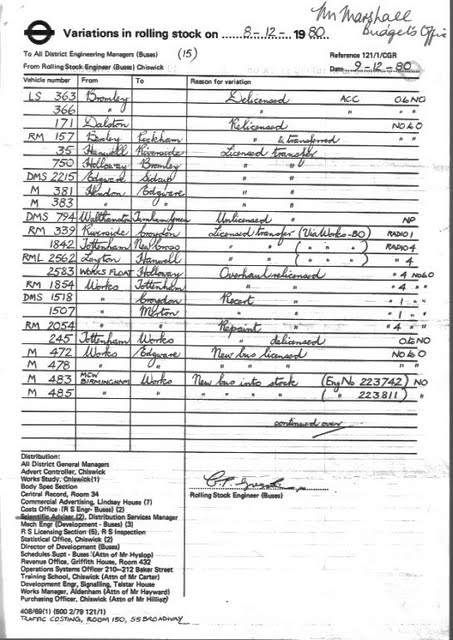 Mr Marshall
Budgets Office
Variations in rolling stock on 8-12- 1980
To All District Engineering Managers (Buses) (15) Reference 121/1/CGR
From Rolling Stock Engineer (Buses) Chiswick Date 9-12-80
Vehicle number From To Reason for variation
LS 363 Bromley Delicensed ACC
366 " " "
171 Dalston Relicensed NO & O
RM 157 Bexley Peckham " & transferred "
35 Hanwell Riverside Licensed transfer
750 Holloway Bromley " "
DMS 2215 Edgware Sidcup " "
M 381 Hendon Edgware " "
M 383 " " " "
DMS 794 Walthamstow Turnham Green Unlicensed " NP
RM 339 Riverside Croydon Licensed transfer (Via Works-BO) RADIO 1
1842 Tottenham New Cross " " ( " " " ) RADIO 4
RML 2562 Leyton Hanwell " " " 4
2583 WORKS FLOAT Holloway Overhaul relicensed " 4 NO&O
RM 1854 Works Tottenham " " " 4 " "
DMS 1518 " Croydon Recert " " 1 " "
1507 " Merton " " " 1 " "
RM 2054 " Repaint " " 4 " "
245 Tottenham Works " delicensed
M 472 Works Edgware New bus licensed NO & O
M 478 " " " " " " "
M 483 MCW BIRMINGHAM Works New bus into stock (Eng No 223742) NO
M 485 " " " " " " ( " 223811 ) "
continued over
Distribution:
All District General Managers
Advert Controller, Chiswick
Works Study, Chiswick (1)
Body Spec Section
Central Record, Room 34
Commercial Advertising, Lindsay House (7)
Costs Office (R S Engr Buses) (2)
Scientific Adviser (2), Distribution Services Manager
Mech Engr (Development - Buses) (3)
R S Licensing Section (5), R S Inspection
Statistical Office, Chiswick (2)
Director of Development (Buses)
Schedules Supt - Buses (Attn of Mr Hyslop)
Revenue Office, Griffith House, Room 432
Operations Systems Officer 210-212 Baker Street
Training School, Chiswick (Attn of Mr Carter)
Development Engr, Signalling, Telstar House
Works Manager, Aldenham (Attn of Mr Hayward)
Purchasing Officer, Chiswick (Attn of Mr Hillier)
Rolling Stock Engineer (Buses)
408/69(1) (600 2/79 121/1)
TRAFFIC COSTING, ROOM 150, 55 BROADWAY